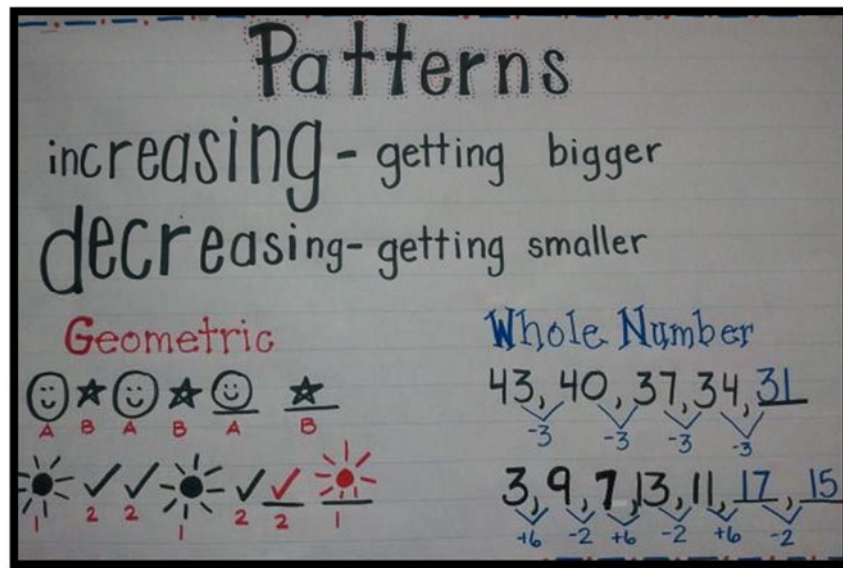 Patterns
increasing - getting bigger
decreasing - getting smaller
Geometric
A B A B A B
1 2 2 1 2 2 1
Whole Number
43, 40, 37, 34, 31
-3 -3 -3 -3
3, 9, 7, 13, 11, 17, 15
+6 -2 +6 -2 +6 -2